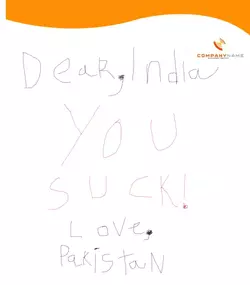 COMPANYNAME
Dear, India
YOU
SUCK!
Love,
Pakistan